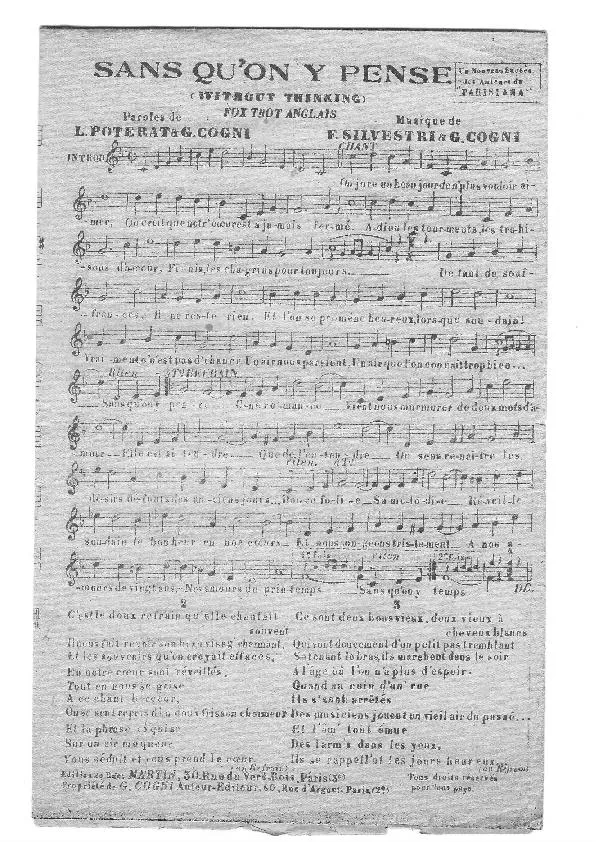 SANS QU'ON Y PENSE
Un Nouveau Succès
des Auteurs de
"PARISIANA"
(WITHOUT THINKING)
FOX TROT ANGLAIS
Paroles de
L. POTERAT & G. COGNI
Musique de
F. SILVESTRI & G. COGNI
INTROD.
CHANT
On jure un beau jour de n'plus vouloir ai-
mer, On croit que notr' cœur est à jamais fermé. Adieu les tourments, les trahi-
sons d'un cœur, Finis, les chagrins pour toujours... De tant de souf-
frances, Il ne reste rien, Et l'on se promène heureux, lorsque soudain!
Vraiment c'n'est pas d'chance Un air nous parvient, Un air que l'on connaît trop bien...
Rten. REFRAIN
Sans qu'on y pense C'ne romance Vient nous murmurer de doux mots d'a-
mour Elle est si tendre Que de l'entendre On sent renaître les
rten. ATº
désirs défunts des anciens jours... Douce folie Sa mélodie Réveille
soudain le bonheur en nos cœurs Et nous songeons tristement A nos a-
1º Fois
rten
2º Fois
mours de vingt ans, Nos amours du printemps Sans qu'on y temps
D.C.
2
C'est le doux refrain qu'elle chantait
souvent
Il nous fait revoir son visag' charmant,
Et les souvenirs qu'on croyait effacés,
En notre cœur sont réveillés,
Tout en nous se grise
A ce chant berceur,
On se sent repris du doux frisson charmeur
Et la phrase exquise
Sur un air moqueur
Vous séduit et vous prend le cœur.
(au Refrain)
3
Ce sont deux bons vieux, deux vieux à
cheveux blancs
Qui vont doucement d'un petit pas tremblant
Se tenant le bras, ils marchent dans le soir
A l'âge où l'on n'a plus d'espoir.
Quand au coin d'un rue
Ils s'sont arrêtés
Des musiciens jouent un vieil air du passé...
Et l'âm' tout émue
Des larm's dans les yeux,
Ils se rappell'nt les jours heureux...
(au Refrain)
MARTIN, 30, Rue du Vert-Bois, Paris (3e)
Propriété de G. COGNI Auteur-Editeur, 60, Rue d'Argout, Paris (2e)
Tous droits réservés
pour tous pays.